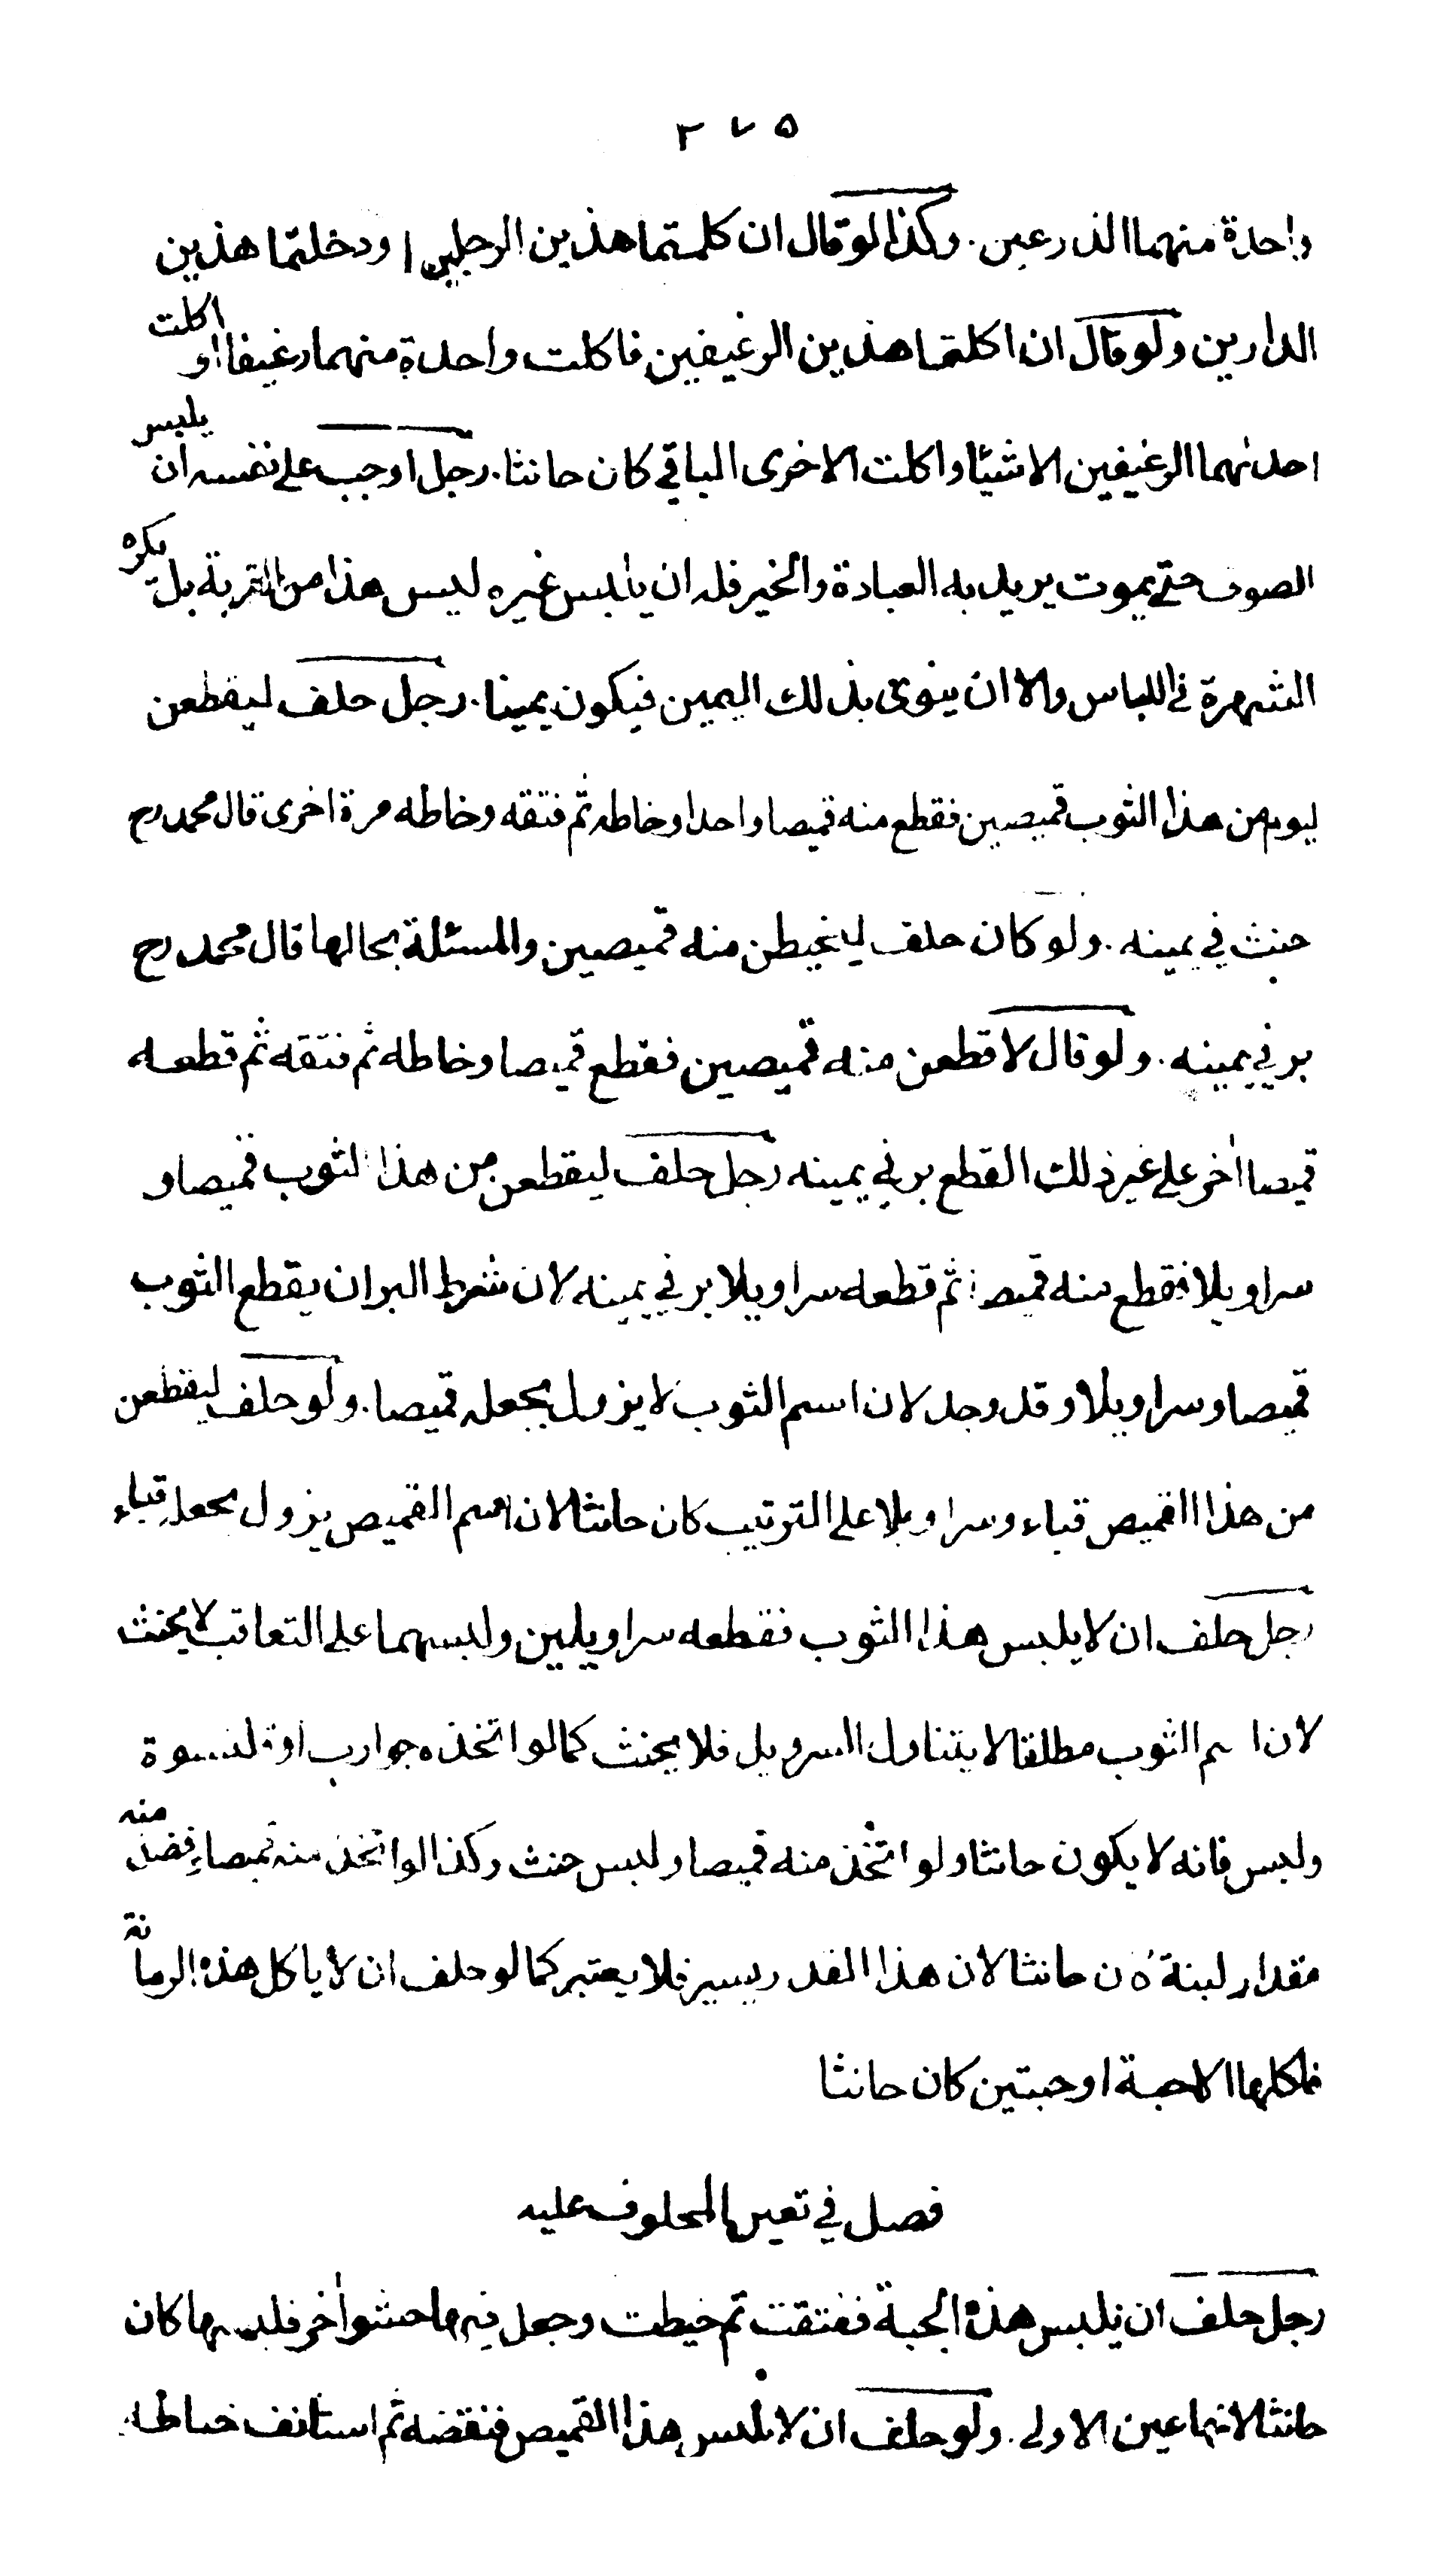 ٢٧٥
واحدة منهما الذرعين. وكذا لو قال ان كلمتما هذين الرجلين او دخلتما هذين
الدارين ولو قال ان اكلتما هذين الرغيفين فاكلت واحدة منهما رغيفا او اكلت
احدٰىهما الرغيفين الا شيئا واكلت الاخرى الباقي كان حانثا. رجل اوجب على نفسه ان يلبس
الصوف حتى يموت يريد به العبادة والخير فله ان يلبس غيره ليس هذا من القربة بل يكره
الشهرة في اللباس والا ان ينوى بذلك اليمين فيكون يمينا. رجل حلف ليقطعن
ليوم من هذا الثوب قميصين فقطع منه قميصا واحدا وخاطه ثم فتقه وخاطه مرة اخرى قال محمد رح
حنث في يمينه. ولو كان حلف ليخيطن منه قميصين والمسئلة بحالها قال محمد رح
بر في يمينه. ولو قال لاقطعن منه قميصين فقطع قميصا وخاطه ثم فتقه ثم قطعه
قميصا اٰخر على غير ذلك القطع بر في يمينه رجل حلف ليقطعن من هذا الثوب قميصا و
سراويلا فقطع منه قميصا ثم قطعه سراويلا بر في يمينه لان شرط البر ان يقطع الثوب
قميصا وسراويلا وقد وجد لان اسم الثوب لا يزول بجعله قميصا. ولو حلف ليقطعن
من هذا القميص قباء وسراويلا على الترتيب كان حانثا لان اسم القميص يزول بجعله قباء
رجل حلف ان لا يلبس هذا الثوب فقطعه سراويلين ولبسهما على التعاقب لا يحنث
لان اسم الثوب مطلقا لا يتناول السرويل فلا يحنث كما لو اتخذه جوارب او قلنسوة
ولبس فانه لا يكون حانثا ولو اتخذ منه قميصا ولبس حنث وكذا لو اتخذ منه قميصا وفضل منه
مقدار لبنة كان حانثا لان هذا القدر يسير فلا يعتبر كما لو حلف ان لا ياكل هذه الرمانة
فاكلها الا حبة او حبتين كان حانثا
فصل في تعين المحلوف عليه
رجل حلف ان يلبس هذه الجبة ففتقت ثم خيطت وجعل فيها حشوا اٰخر فلبسها كان
حانثا لانها عين الاولى. ولو حلف ان لا يلبس هذا القميص فنقضه ثم استانف خياطه